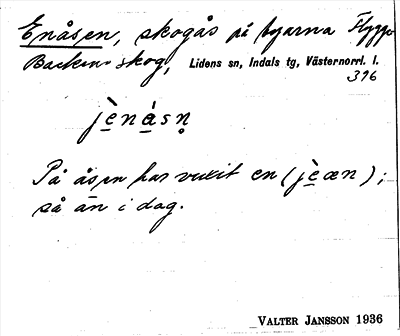 Enåsen, skogås på byarna Flygge
Backens skog, Lidens sn, Indals tg, Västernorrl. l.
396
jènásn̥
På åsen har vuxit en (jèæn);
så än i dag.
VALTER JANSSON 1936